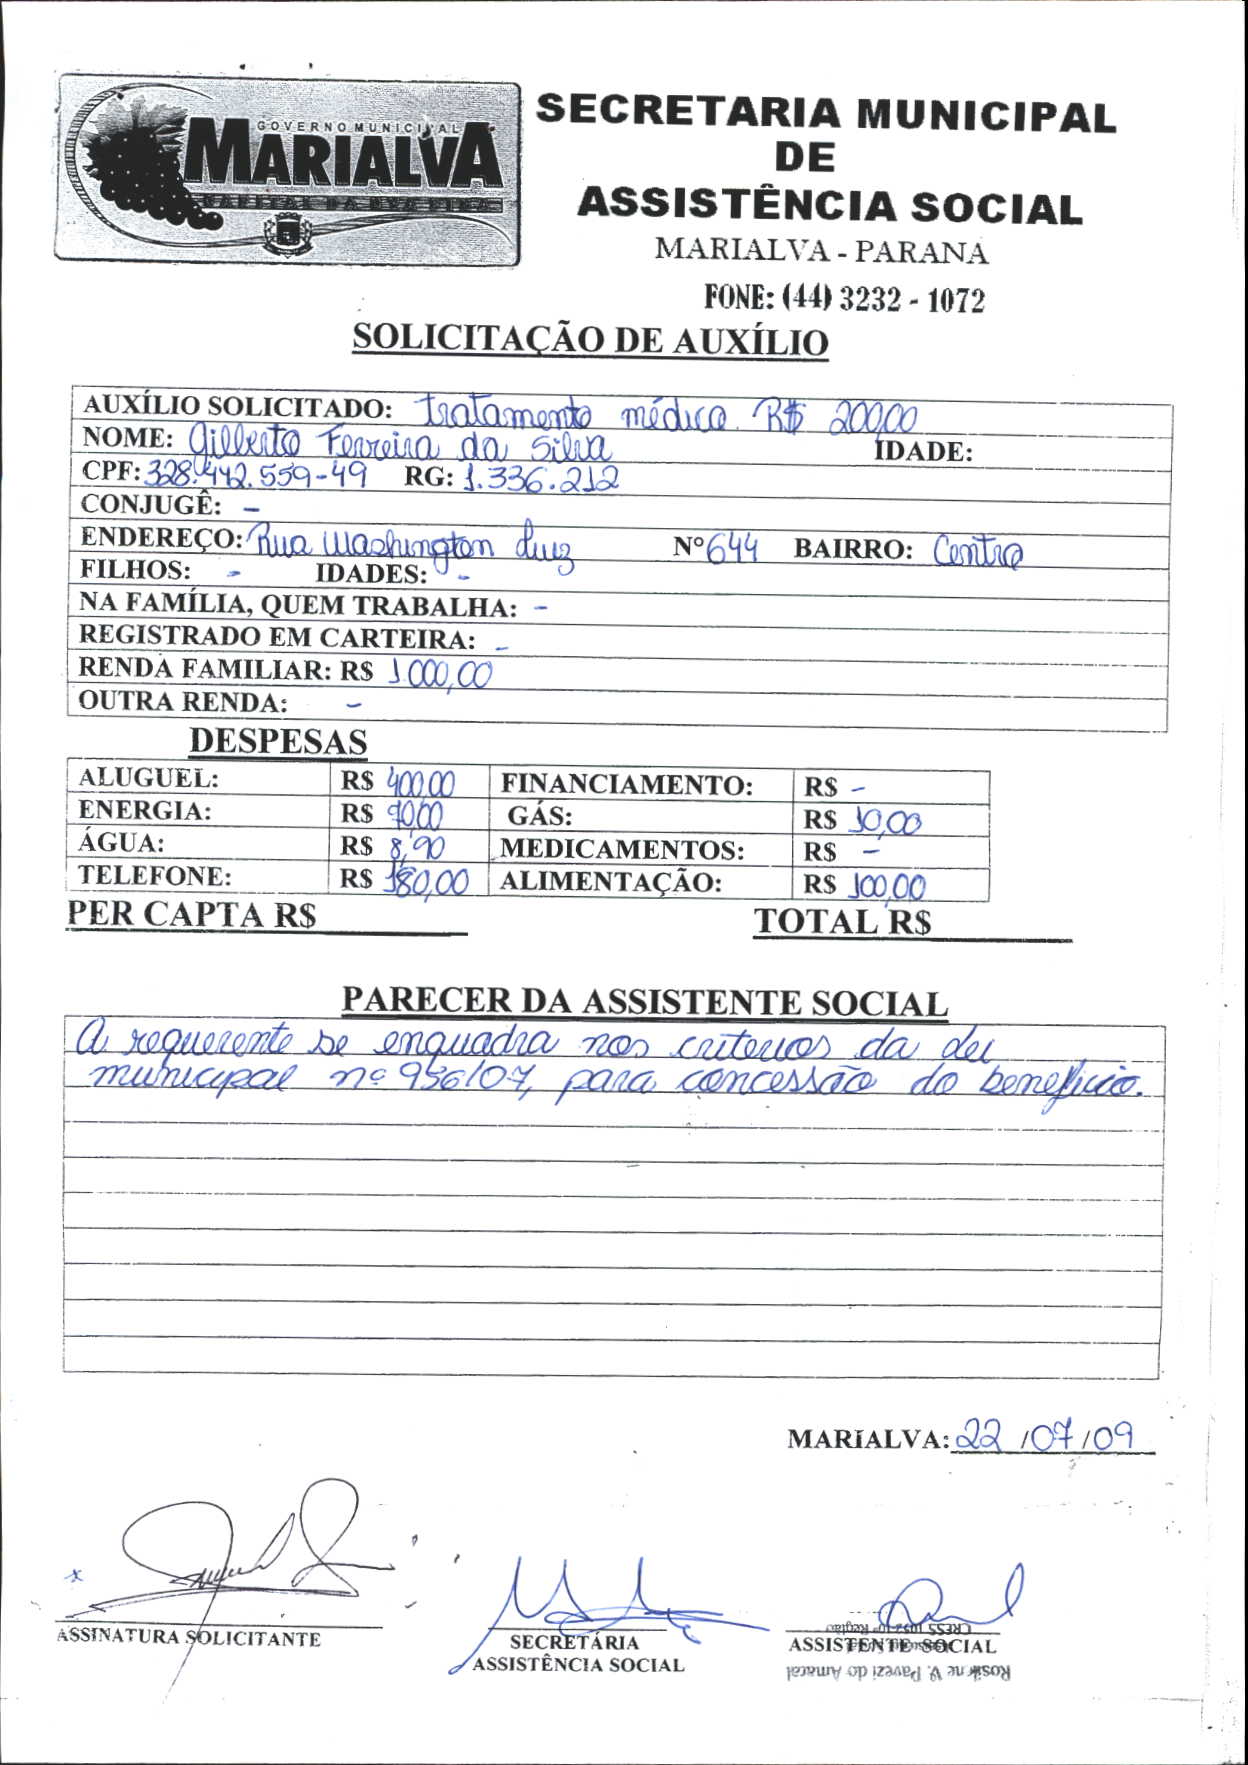 GOVERNO MUNICIPAL
MARIALVA
CAPITAL DA UVA FINA
SECRETARIA MUNICIPAL
DE
ASSISTÊNCIA SOCIAL
MARIALVA - PARANÁ
FONE: (44) 3232 - 1072
SOLICITAÇÃO DE AUXÍLIO
AUXÍLIO SOLICITADO: tratamento médico R$ 200,00
NOME: Gilberto Ferreira da Silva IDADE:
CPF: 328.442.559-49 RG: 1.336.212
CONJUGÊ: -
ENDEREÇO: Rua Washington Luiz Nº 644 BAIRRO: Centro
FILHOS: - IDADES: -
NA FAMÍLIA, QUEM TRABALHA: -
REGISTRADO EM CARTEIRA: -
RENDA FAMILIAR: R$ 1.000,00
OUTRA RENDA: -
DESPESAS
ALUGUEL: R$ 400,00 FINANCIAMENTO: R$ -
ENERGIA: R$ GÁS: R$ 10,00
ÁGUA: R$ 8,90 MEDICAMENTOS: R$ -
TELEFONE: R$ 180,00 ALIMENTAÇÃO: R$ 100,00
PER CAPTA R$ TOTAL R$
PARECER DA ASSISTENTE SOCIAL
A requerente se enquadra nos criterios da lei
municipal nº 956/07, para concessão do beneficio.
MARIALVA: 22 /07/09
x
ASSINATURA SOLICITANTE
SECRETÁRIA
ASSISTÊNCIA SOCIAL
ASSISTENTE SOCIAL